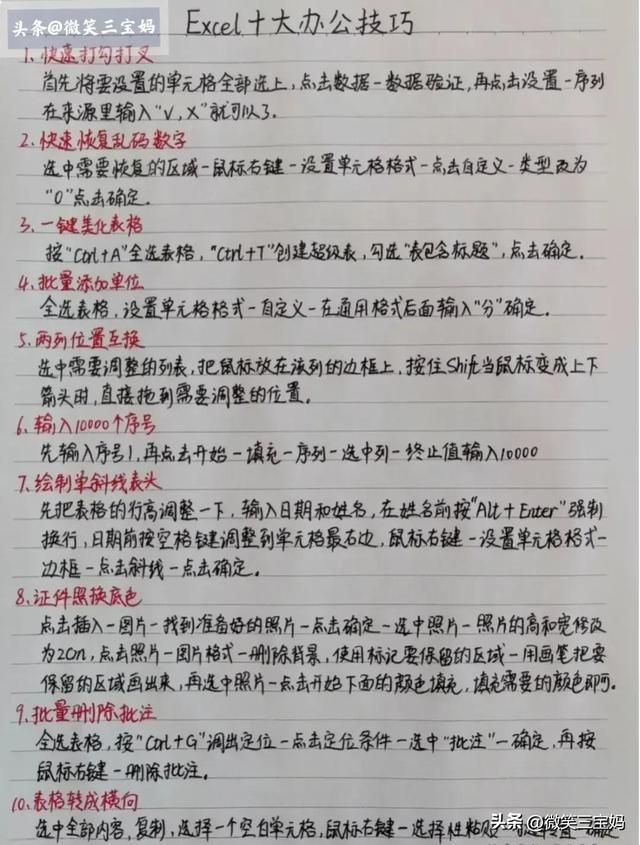 头条@微笑三宝妈
Excel十大办公技巧
1、快速打勾打叉
首先将要设置的单元格全部选上，点击数据-数据验证，再点击设置-序列
在来源里输入“√，X”就可以了。
2、快速恢复乱码数字
选中需要恢复的区域-鼠标右键-设置单元格格式-点击自定义-类型改为
“0”点击确定。
3、一键美化表格
按“Ctrl+A”全选表格，“Ctrl+T”创建超级表，勾选“表包含标题”，点击确定。
4、批量添加单位
全选表格，设置单元格格式-自定义-在通用格式后面输入“分”确定。
5、两列位置互换
选中需要调整的列表，把鼠标放在该列的边框上，按住Shift当鼠标变成上下
箭头时，直接拖到需要调整的位置。
6、输入10000个序号
先输入序号1，再点击开始-填充-序列-选中列-终止值输入10000
7、绘制单斜线表头
先把表格的行高调整一下，输入日期和姓名，在姓名前按“Alt+Enter”强制
换行，日期前按空格键调整到单元格最右边，鼠标右键-设置单元格格式-
边框-点击斜线-点击确定。
8、证件照换底色
点击插入-图片-找到准备好的照片-点击确定-选中照片-照片的高和宽修改
为20cn，点击照片-图片格式-删除背景，使用标记要保留的区域-用画笔把要
保留的区域画出来，再选中照片-点击开始下面的颜色填充，填充需要的颜色即可。
9、批量删除批注
全选表格，按“Ctrl+G”调出定位-点击定位条件-选中“批注”-确定，再按
鼠标右键-删除批注。
10、表格转成横向
选中全部内容，复制，选择一个空白单元格，鼠标右键-选择性粘贴 转置-确定
头条@微笑三宝妈